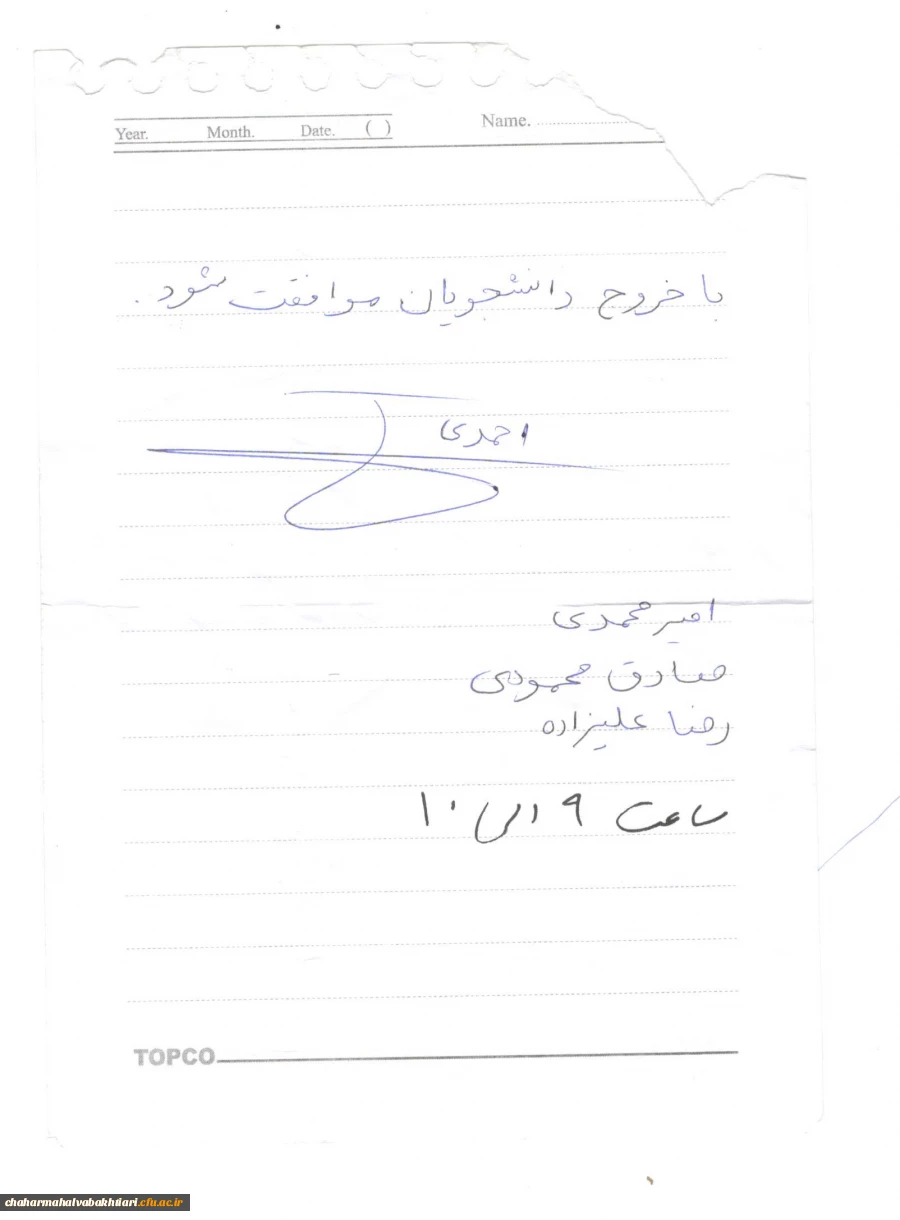 Year. Month. Date. ( ) Name.
با خروج دانشجویان موافقت شود.
احمدی
امیر محمدی
صادق محمودی
رضا علیزاده
ساعت ۹ الی ۱۰
TOPCO
chaharmahalvabakhtiari.cfu.ac.ir